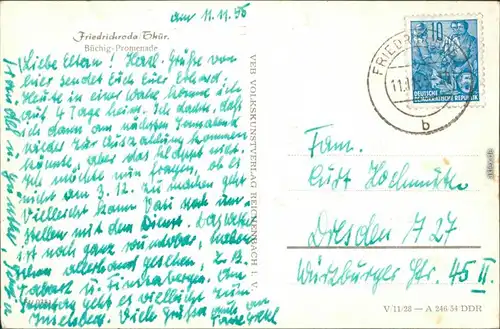 am 11.11.56
Friedrichroda Thür.
Büchig-Promenade
Liebe Eltern! Herzl. Grüße von
hier sendet Euch Euer Ekhard.
Heute in einer Woche komme ich
auf 4 Tage heim. Ich dachte, daß
ich dann am nächsten Sonnabend
wieder zur Auszahlung kommen
könnte, aber das klappt nicht.
Ich möchte nun fragen, ob es
nicht am 3.12. zu machen geht
Vielleicht kann Vati noch um-
stellen mit dem Dienst. Das Wetter
ist noch ganz wunderbar, haben
schon allerhand gesehen, z.B.
Tabarz u. Finsterbergen. Am
Sonntag geht es vielleicht zum
Inselsberg. Viele Grüße auch an
VEB VOLKSKUNSTVERLAG REICHENBACH I. V.
FRIEDRICHRODA
11.11
b
10
5
DEUTSCHE
DEMOKRATISCHE REPUBLIK
Fam.
Curt Hochmuth
Dresden A 27
Würzburger Str. 45 II.
V/11/28 — A 246/54 DDR